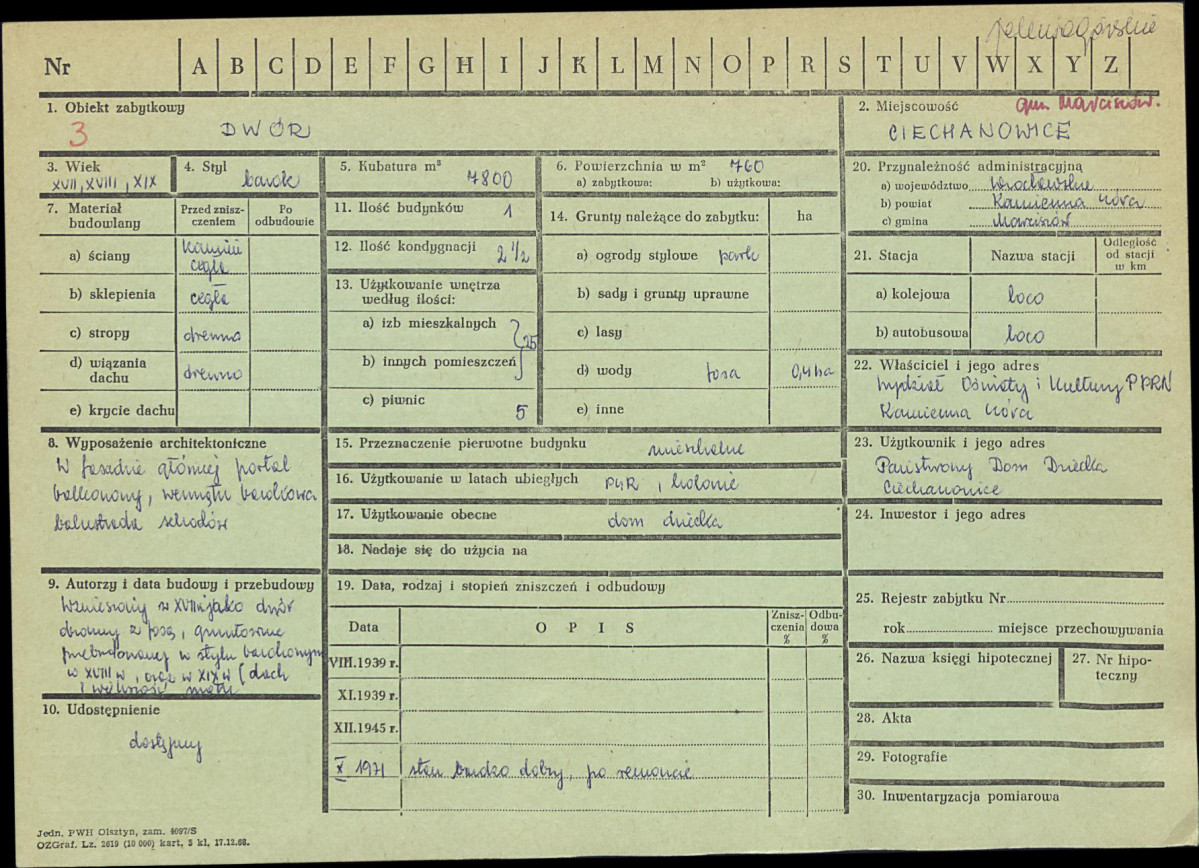 jeleniogórskie
Nr A B C D E F G H I J K L M N O P R S T U V W X Y Z
1. Obiekt zabytkowy
3 DWÓR
2. Miejscowość gm. Marciszów.
CIECHANOWICE
3. Wiek
XVII, XVIII, XIX
4. Styl
barok
5. Kubatura m³
7800
6. Powierzchnia w m² 760
a) zabytkowa: b) użytkowa:
20. Przynależność administracyjna
a) województwo wrocławskie
b) powiat Kamienna Góra
c) gmina Marciszów
7. Materiał budowlany
Przed zniszczeniem
Po odbudowie
a) ściany kamień
cegła
b) sklepienia cegła
c) stropy drewno
d) wiązania dachu drewno
e) krycie dachu
11. Ilość budynków 1
12. Ilość kondygnacji 2 1/2
13. Użytkowanie wnętrza
według ilości:
a) izb mieszkalnych
25
b) innych pomieszczeń
c) piwnic 5
14. Grunty należące do zabytku: ha
a) ogrody stylowe park
b) sady i grunty uprawne
c) lasy
d) wody fosa 0,4 ha
e) inne
21. Stacja Nazwa stacji Odległość
od stacji
w km
a) kolejowa loco
b) autobusowa loco
22. Właściciel i jego adres
Wydział Oświaty i Kultury PPRN
Kamienna Góra
8. Wyposażenie architektoniczne
W fasadzie głównej portal
balkonowy, wewnątrz barokowa
balustrada schodów
15. Przeznaczenie pierwotne budynku mieszkalne
16. Użytkowanie w latach ubiegłych PGR, kolonie
17. Użytkowanie obecne dom dziecka
18. Nadaje się do użycia na
23. Użytkownik i jego adres
Państwowy Dom Dziecka
Ciechanowice
24. Inwestor i jego adres
9. Autorzy i data budowy i przebudowy
Wzniesiony w XVII w jako dwór
obronny z fosą, gruntownie
przebudowany w stylu barokowym
w XVIII w, oraz w XIX w (dach
i większość
10. Udostępnienie
dostępny
19. Data, rodzaj i stopień zniszczeń i odbudowy
Data OPIS Zniszczenia % Odbudowa %
VIII.1939 r.
XI.1939 r.
XII.1945 r.
X 1971 stan bardzo dobry, po remoncie
25. Rejestr zabytku Nr
rok miejsce przechowywania
26. Nazwa księgi hipotecznej
27. Nr hipoteczny
28. Akta
29. Fotografie
30. Inwentaryzacja pomiarowa
Jedn. PWH Olsztyn, zam. 4097/S
OZGraf. Lz. 2619 (10 000) kart. 3 kl. 17.12.68.